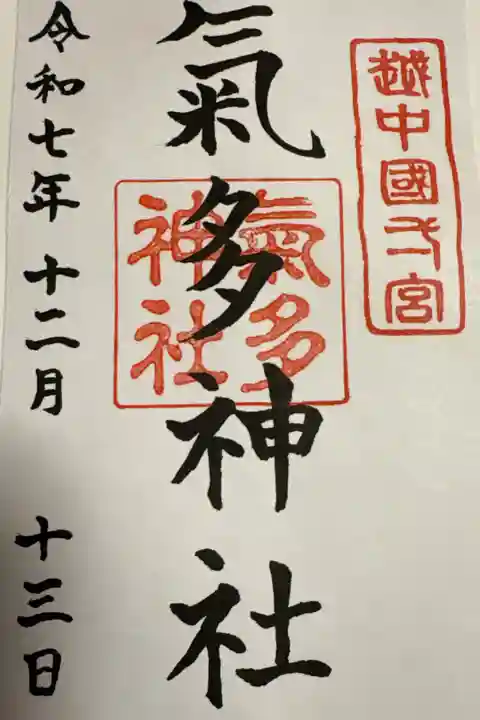 越中國一宮
氣多神社
氣多
神社
令和七年 十二月 十三日